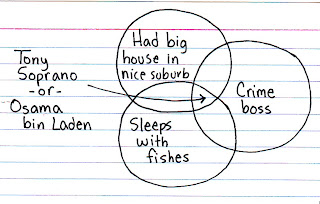 Had big
house in
nice suburb
Tony
Soprano
-or-
Osama
bin Laden
Crime
boss
Sleeps
with
fishes